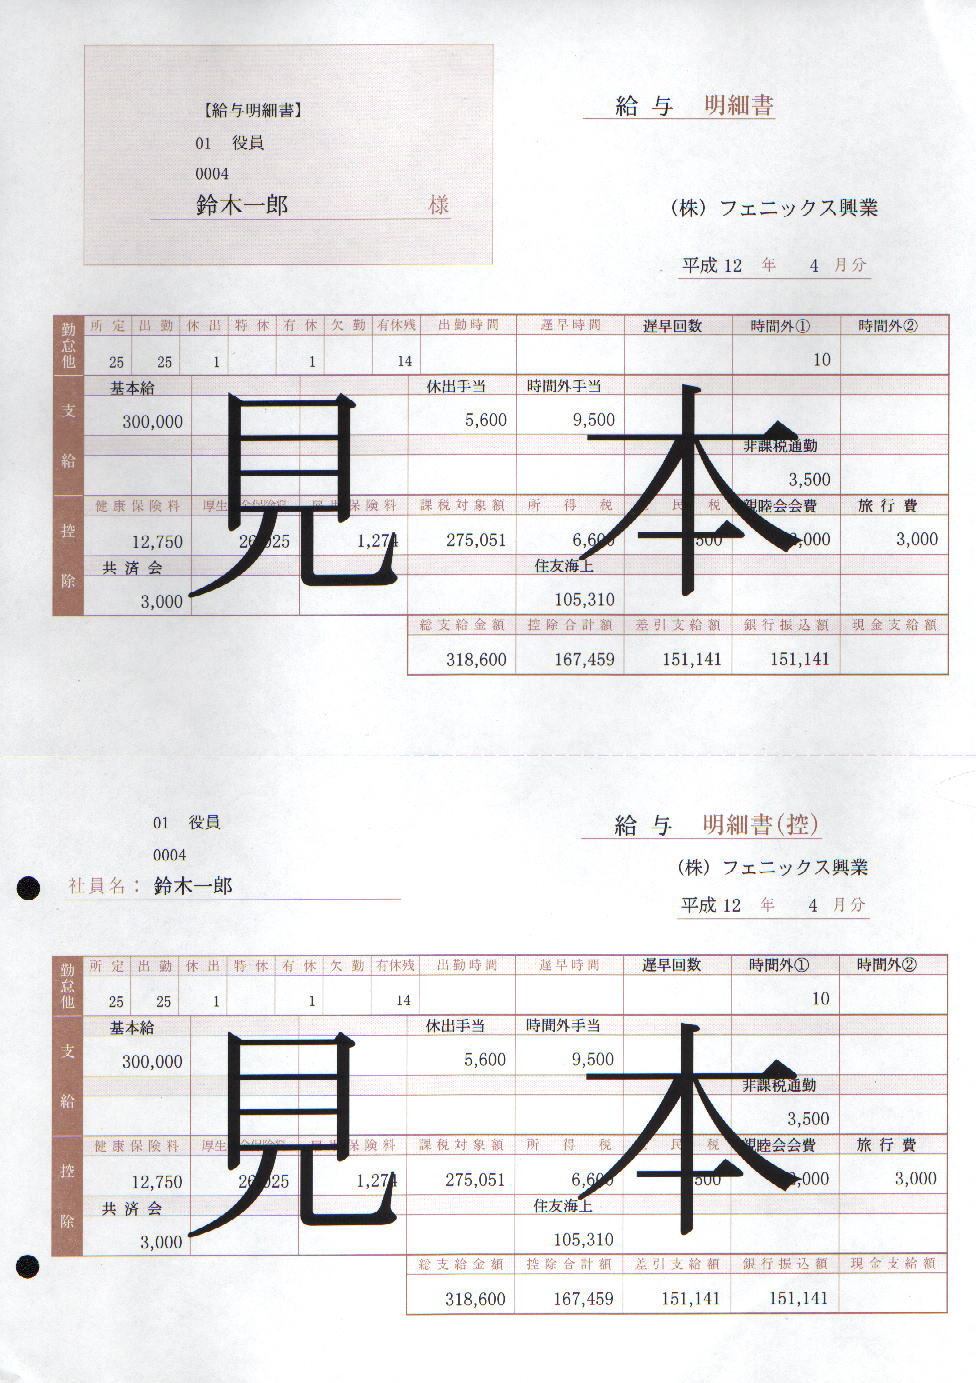 【給与明細書】
01 役員
0004
鈴木一郎 様
給与 明細書
（株）フェニックス興業
平成 12 年 4 月分
勤怠他 所定 出勤 休出 特休 有休 欠勤 有休残 出勤時間 遅早時間 遅早回数 時間外① 時間外②
25 25 1 1 14 10
支給 基本給 休出手当 時間外手当
300,000 5,600 9,500
非課税通勤
3,500
控除 健康保険料 厚生 保険料 課税対象額 所得税 民税 親睦会会費 旅行費
12,750 1,274 275,051 3,000
共済会 住友海上
3,000 105,310
総支給金額 控除合計額 差引支給額 銀行振込額 現金支給額
318,600 167,459 151,141 151,141
見本
01 役員
0004
社員名： 鈴木一郎
給与 明細書（控）
（株）フェニックス興業
平成 12 年 4 月分
勤怠他 所定 出勤 休出 特休 有休 欠勤 有休残 出勤時間 遅早時間 遅早回数 時間外① 時間外②
25 25 1 1 14 10
支給 基本給 休出手当 時間外手当
300,000 5,600 9,500
非課税通勤
3,500
控除 健康保険料 厚生 保険料 課税対象額 所得税 民税 親睦会会費 旅行費
12,750 1,274 275,051 3,000
共済会 住友海上
3,000 105,310
総支給金額 控除合計額 差引支給額 銀行振込額 現金支給額
318,600 167,459 151,141 151,141
見本